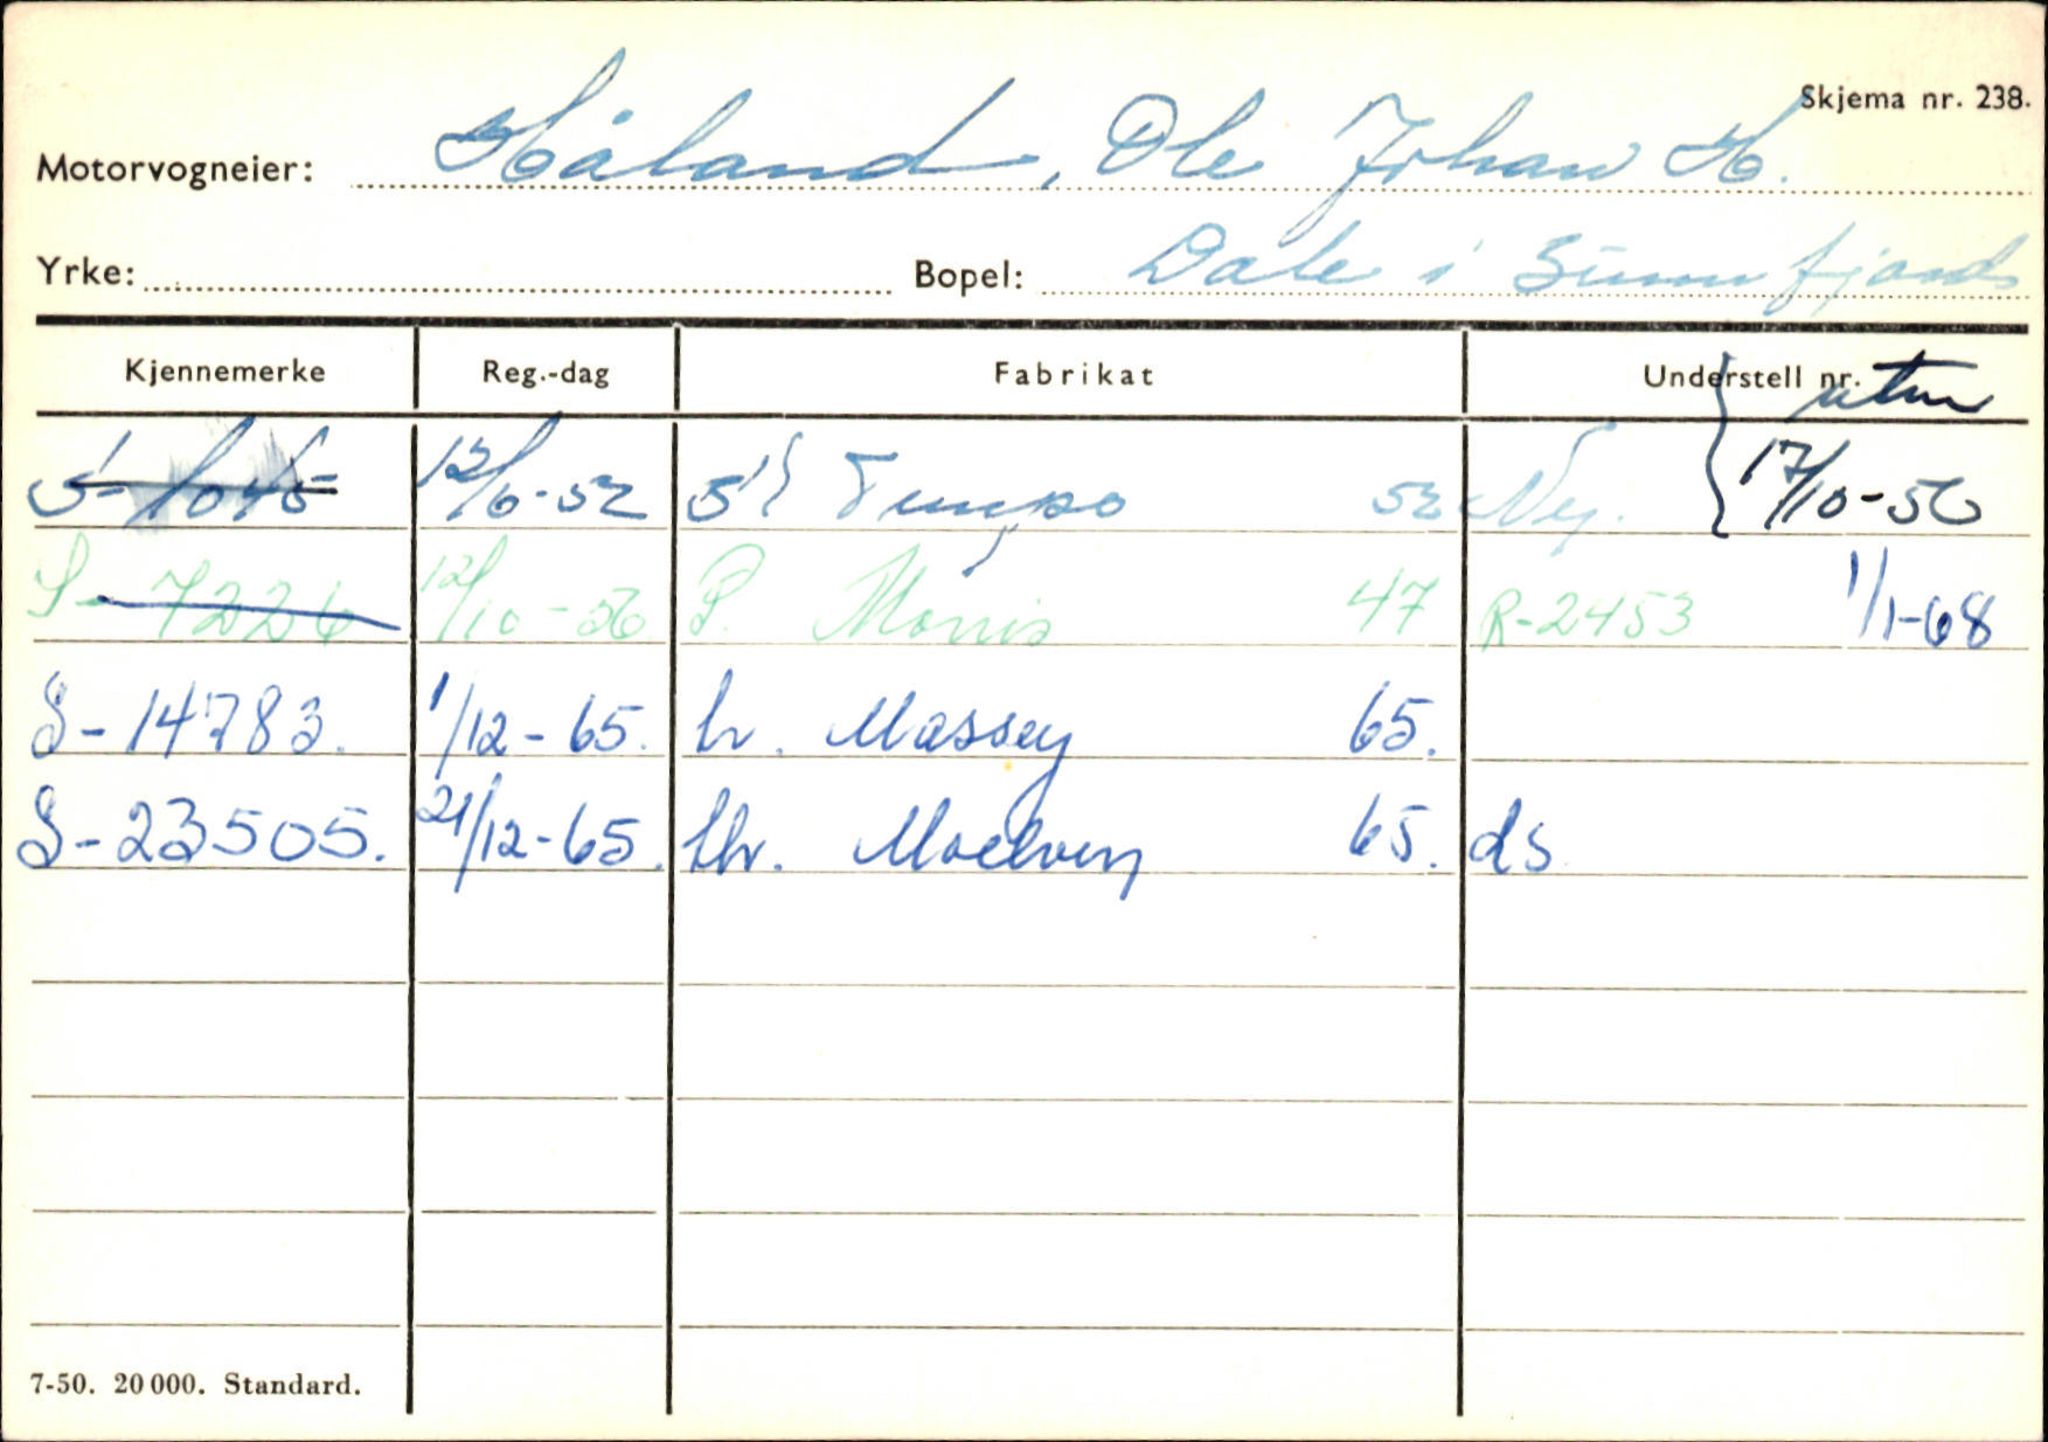 Skjema nr. 238.
Motorvogneier: Håland, Ole Johan H.
Yrke: Bopel: Dale i Sunnfjord
Kjennemerke Reg.-dag Fabrikat Understell nr.
S-1045 12/6-52 Tempo 52 Ny. 17/10-56
S-7226 12/10-56 P. Morris 47 R-2453 1/1-68
S-14783. 1/12-65. tr. Massey 65.
S-23505. 21/12-65. thr. Moelven 65. ds
7-50. 20 000. Standard.